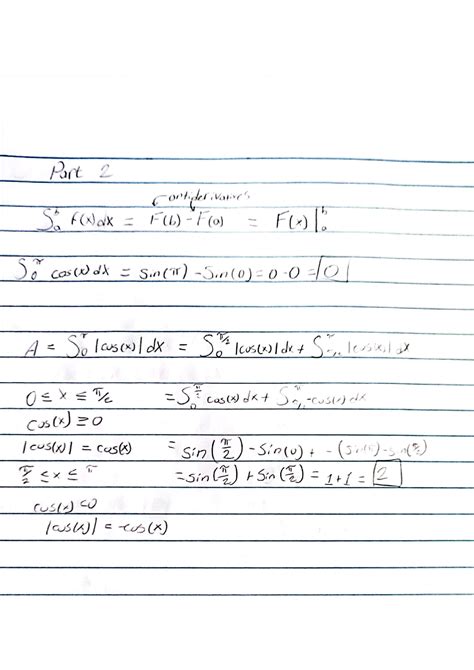 Part 2
antiderivatives
∫ₐᵇ f(x)dx = F(b) - F(a) = F(x)|ₐᵇ
∫₀^π cos(x)dx = sin(π) - sin(0) = 0 - 0 = 0
A = ∫₀^π |cos(x)| dx = ∫₀^(π/2) |cos(x)| dx + ∫_(π/2)^π |cos(x)| dx
0 ≤ x ≤ π/2 = ∫₀^(π/2) cos(x)dx + ∫_(π/2)^π -cos(x)dx
cos(x) ≥ 0
|cos(x)| = cos(x) = sin(π/2) - sin(0) + -(sin(π) - sin(π/2))
π/2 ≤ x ≤ π = sin(π/2) + sin(π/2) = 1+1 = 2
cos(x) ≤ 0
|cos(x)| = -cos(x)